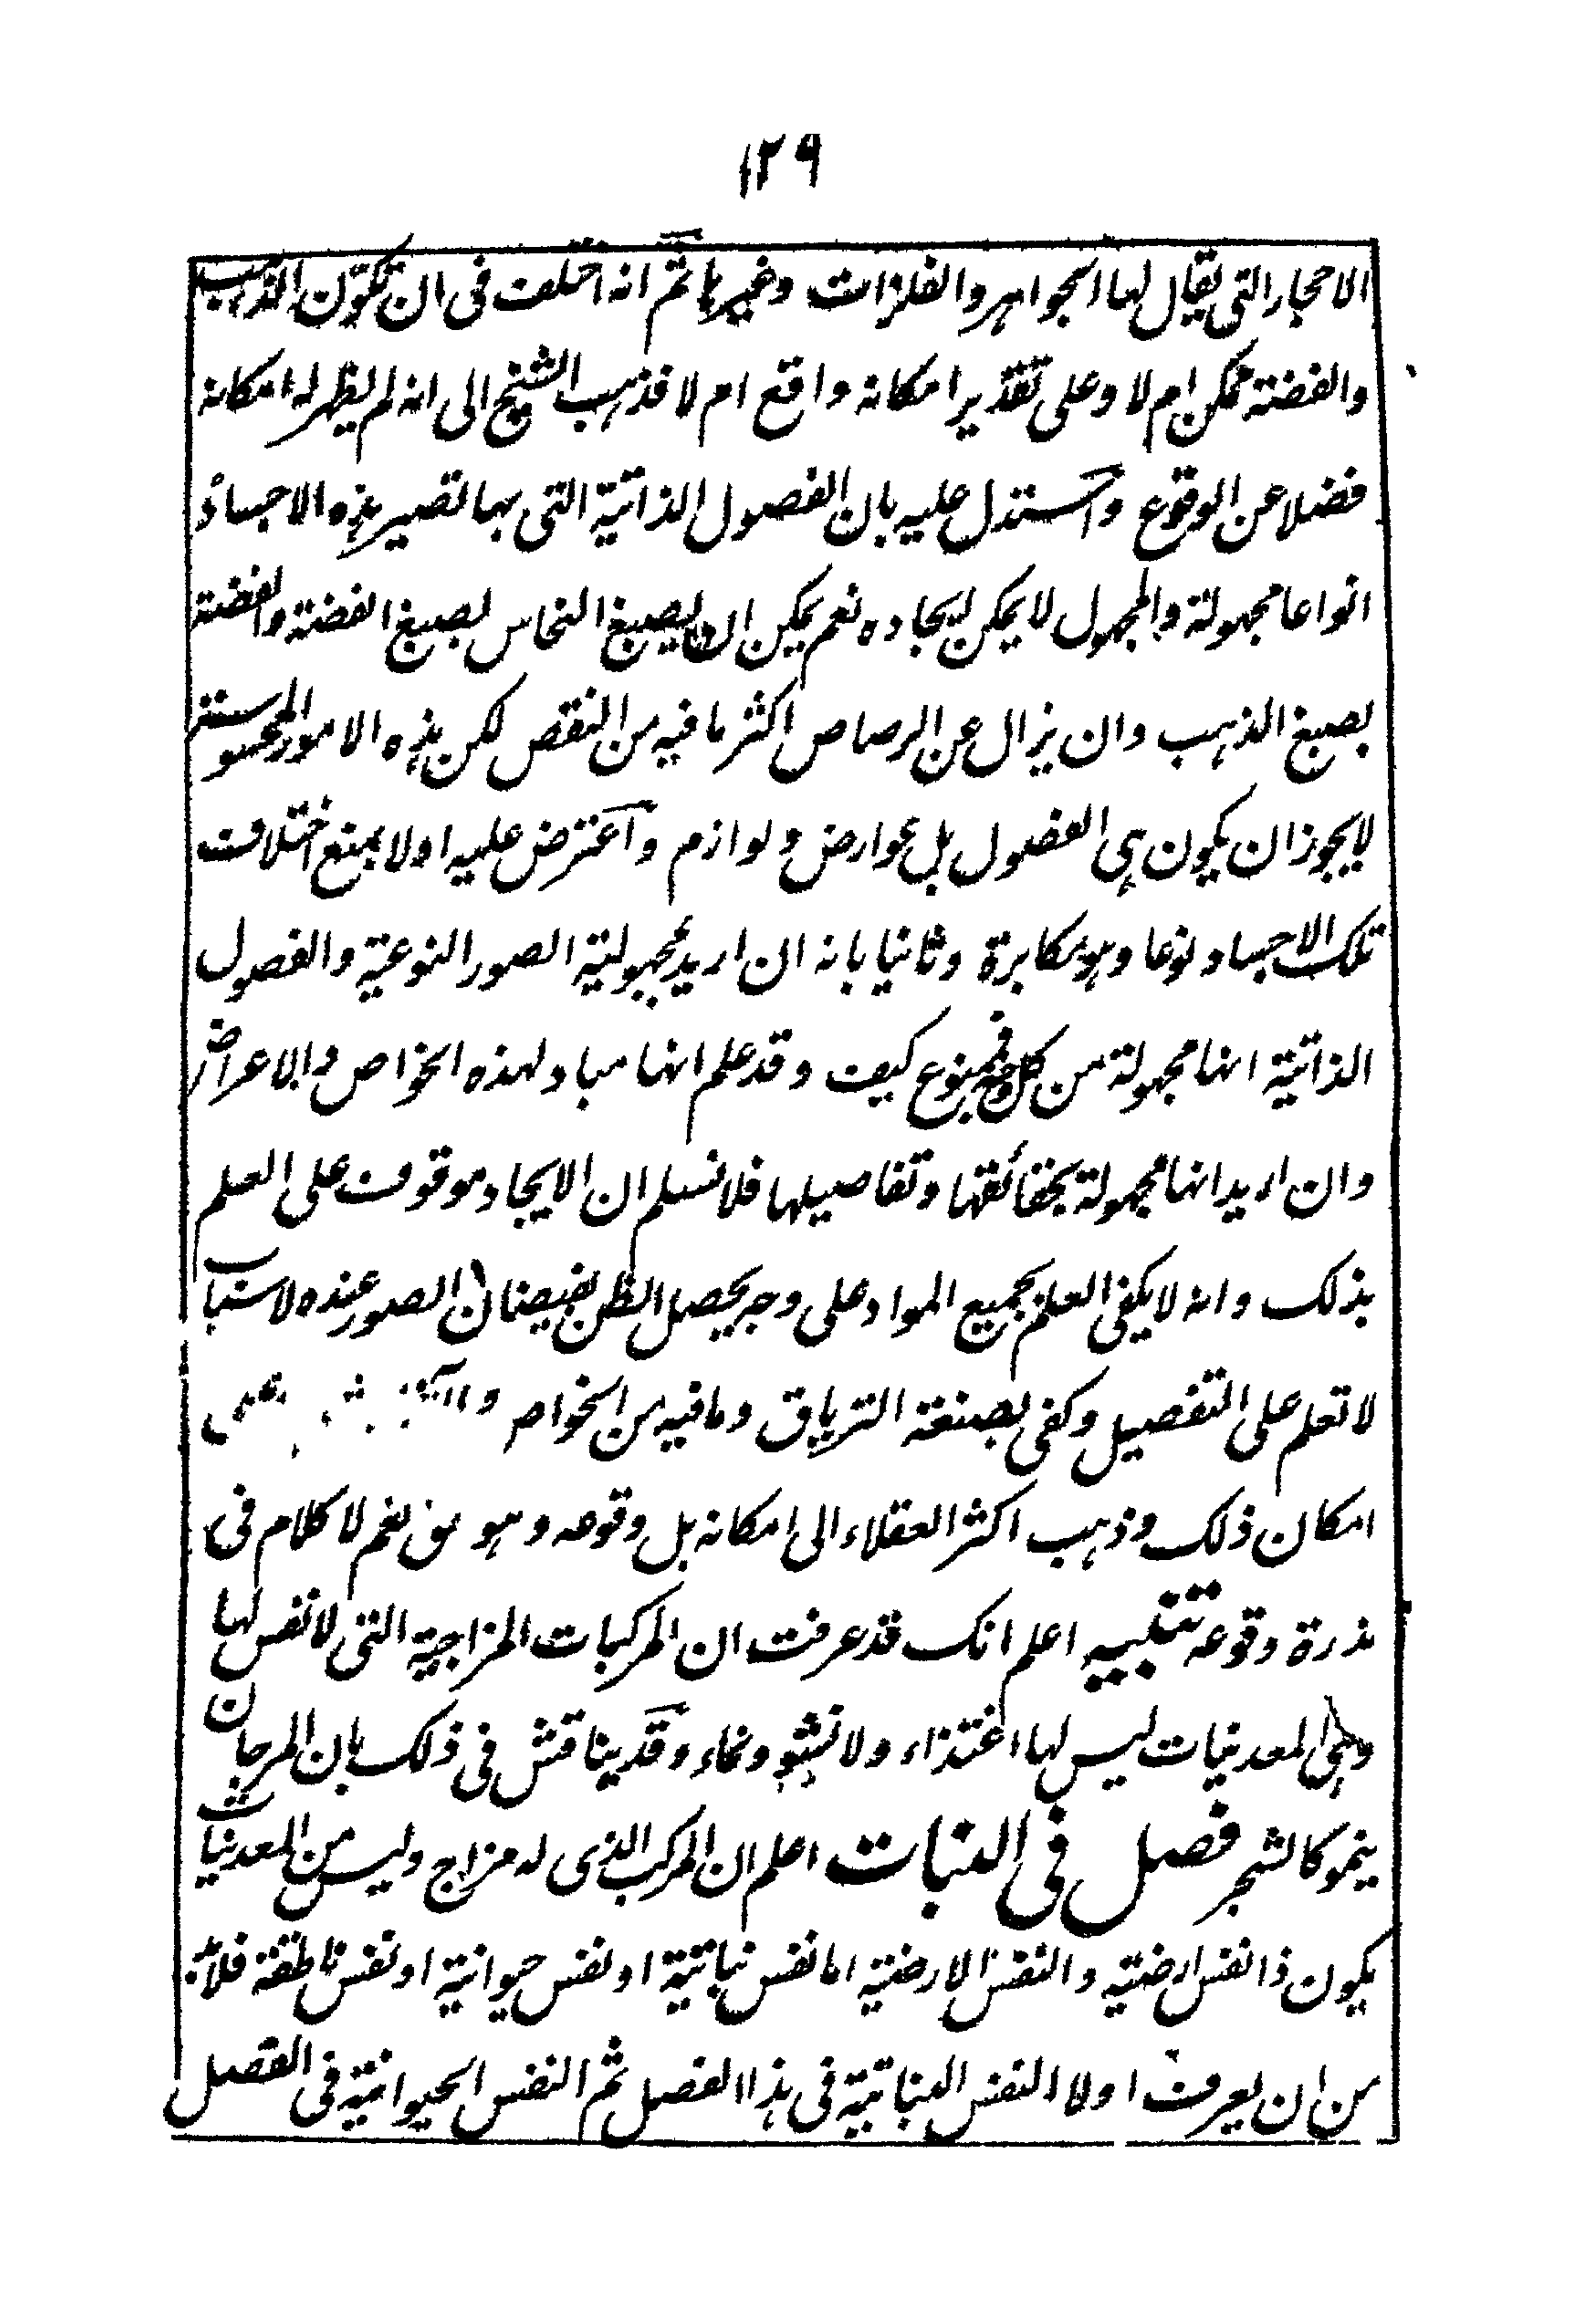 ١٢٩
الاحجار التى يقال لها الجواهر والفلزات وغيرها ثم انه اختلف فى ان تكوّن الذهب
والفضة ممكن ام لا وعلى تقدير امكانه واقع ام لا فذهب الشيخ الى انه لم يظهر له امكانه
فضلا عن الوقوع واستدل عليه بان الفصول الذاتية التى بها تصير هذه الاجساد
انواعا مجهولة والمجهول لا يمكن ايجاده نعم يمكن ان يصبغ النحاس بصبغ الفضة والفضة
بصبغ الذهب وان يزال عن الرصاص اكثر ما فيه من النقص لكن هذه الامور المحسوسة
لا يجوز ان يكون هى الفصول بل عوارض ولوازم واعترض عليه اولا بمنع اختلاف
تلك الاجساد نوعا وهو مكابرة وثانيا بانه ان اريد بمجهولية الصور النوعية والفصول
الذاتية انها مجهولة من كل وجه فممنوع كيف وقد علم انها مباد لهذه الخواص والاعراض
وان اريد انها مجهولة بحقائقها وتفاصيلها فلا نسلم ان الايجاد موقوف على العلم
بذلك وانه لا يكفى العلم بجميع المواد على وجه يحصل الظن بفيضان الصور عنده لاسباب
لا تعلم على التفصيل وكفى بصنعة الترياق وما فيه من الخواص على
امكان ذلك وذهب اكثر العقلاء الى امكانه بل وقوعه وهو نعم لا كلام فى
ندرة وقوعه تنبيه اعلم انك قد عرفت ان المركبات المزاجية التى لا نفس لها
وهى المعدنيات ليس لها اغتذاء ولا نشو ونماء وقد يناقش فى ذلك بان المرجان
ينمو كالشجر فصل فى النبات اعلم ان المركب الذى له مزاج وليس من المعدنيات
يكون ذا نفس ارضية والنفس الارضية اما نفس نباتية او نفس حيوانية او نفس ناطقة فلابد
من ان يعرف اولا النفس النباتية فى هذا الفصل ثم النفس الحيوانية فى الفصل